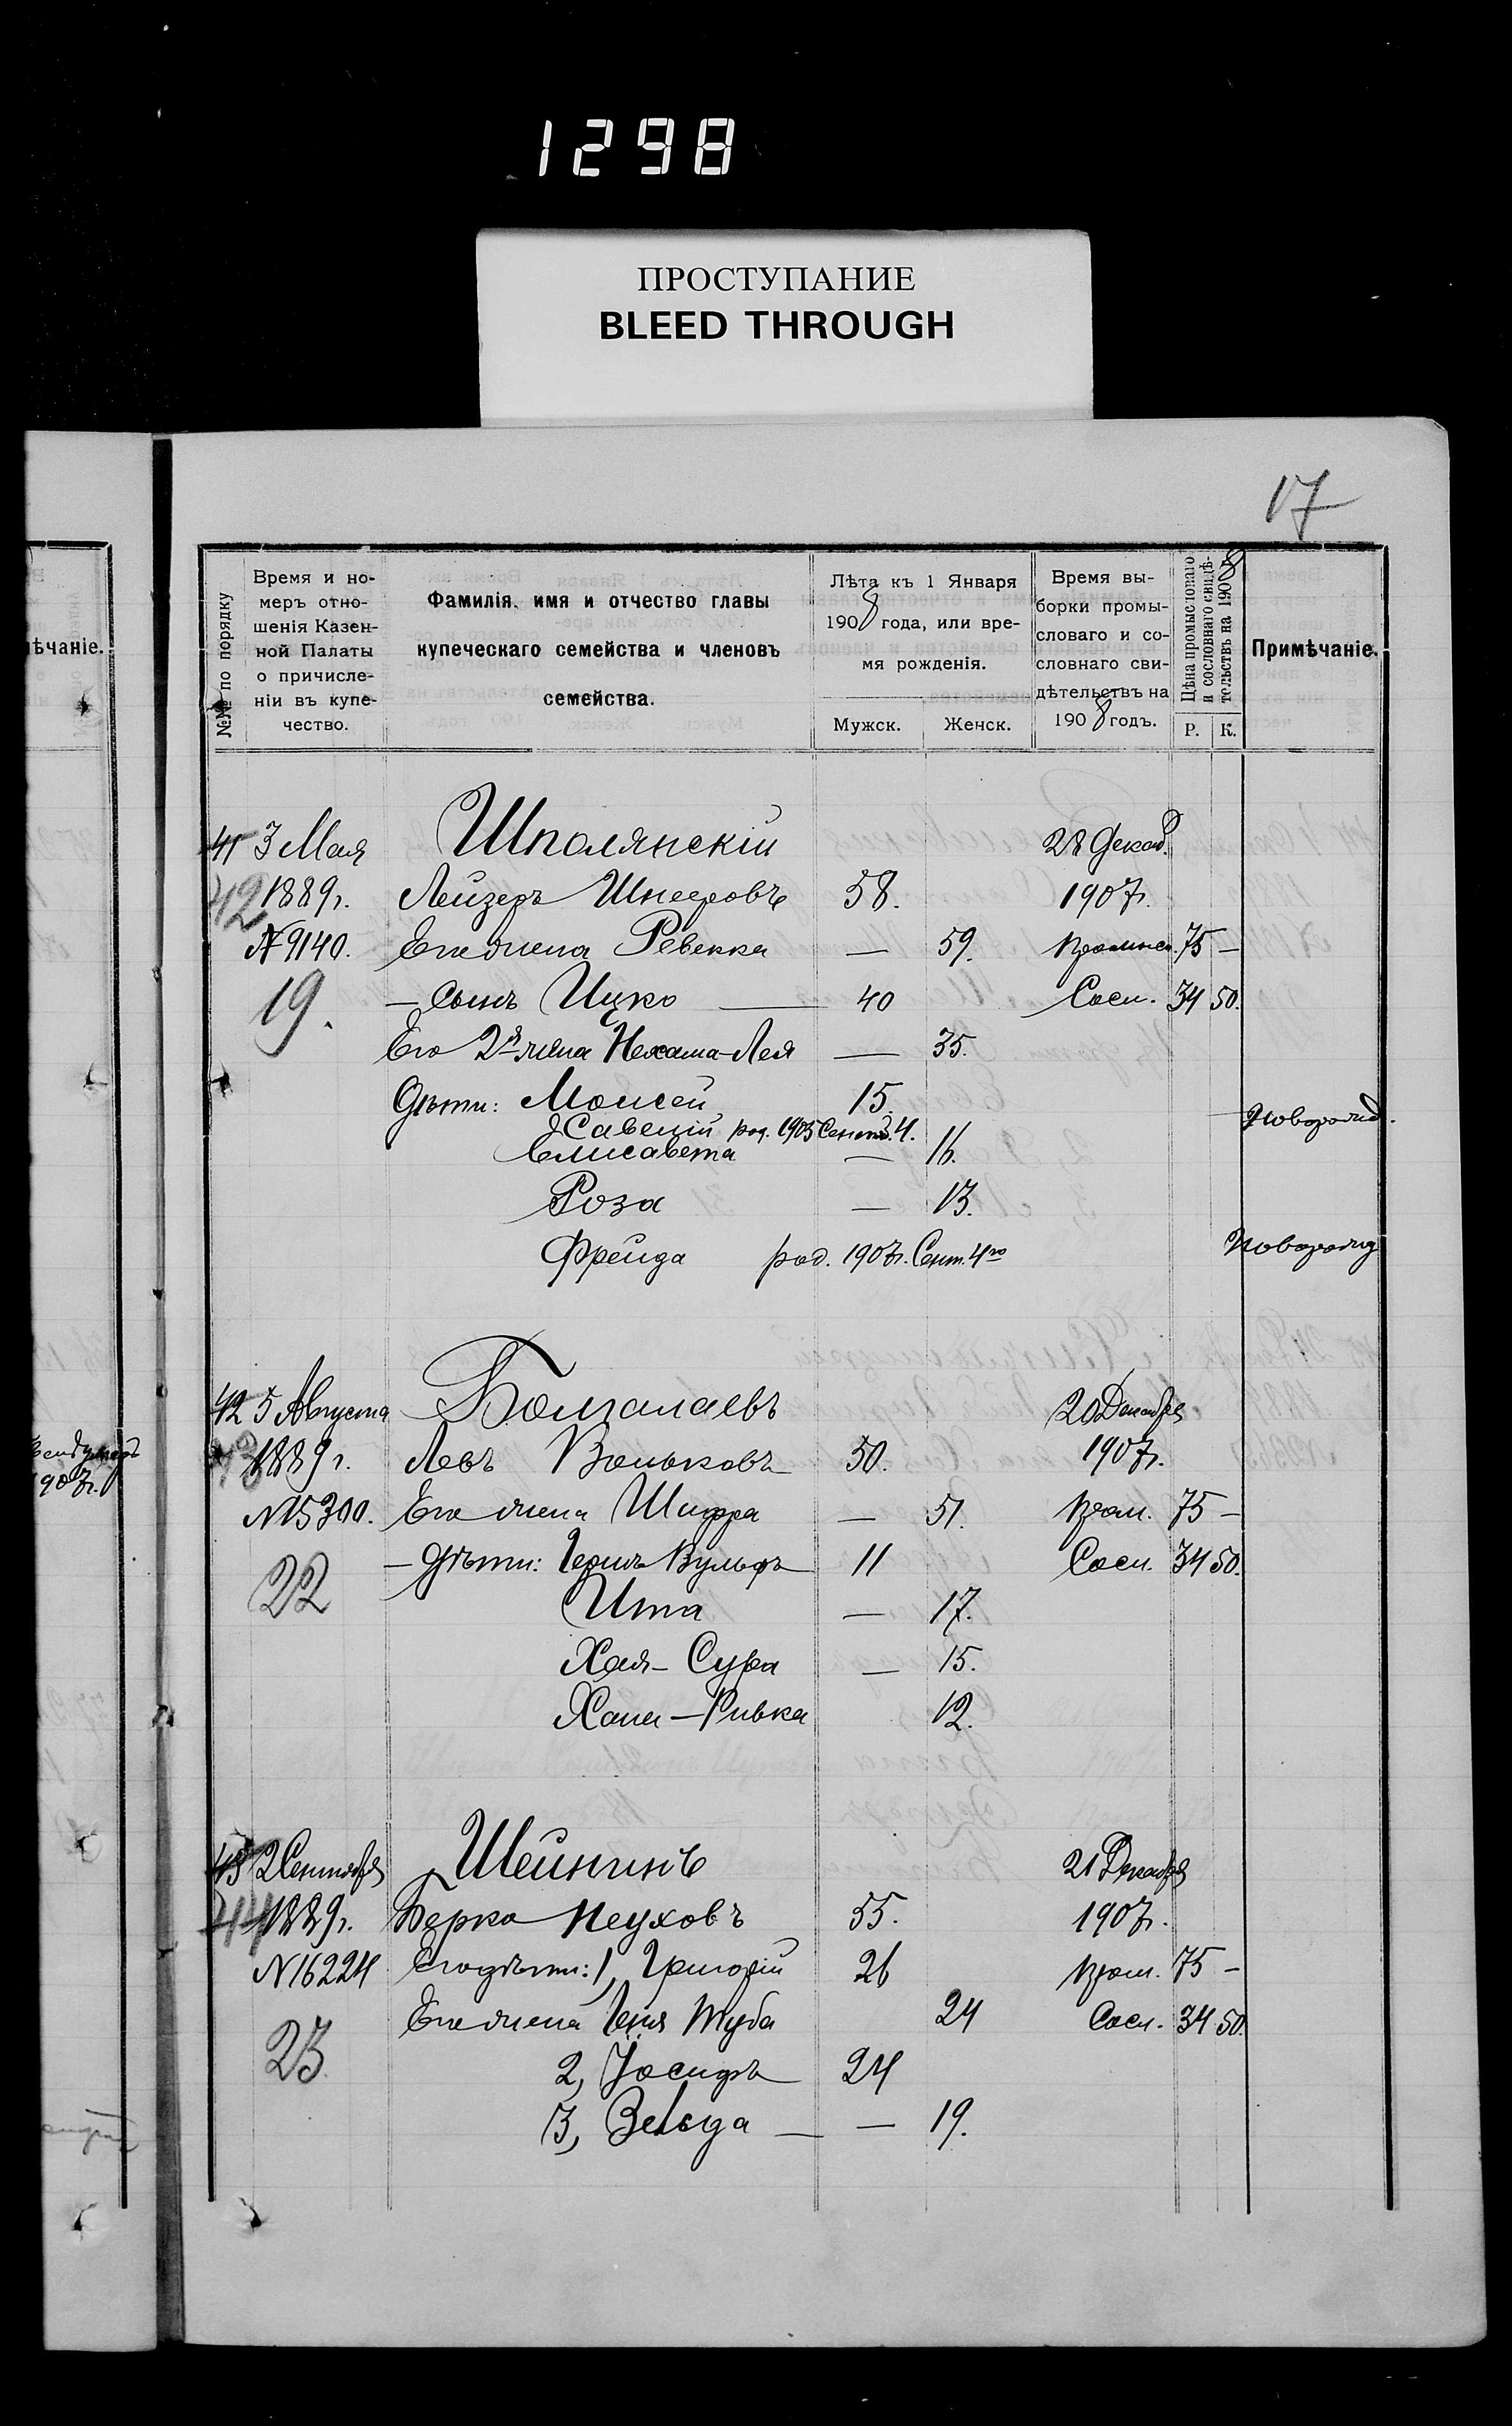 1298
ПРОСТУПАНИЕ
BLEED THROUGH
17
ѣчаніе.
1907г.
№№ по порядку
Время и но-
меръ отно-
шенія Казен-
ной Палаты
о причисле-
ніи въ купе-
чество.
Фамилія, имя и отчество главы
купеческаго семейства и членовъ
семейства.
Лѣта къ 1 Января
1908 года, или вре-
мя рожденія.
Мужск. Женск.
Время вы-
борки промы-
словаго и со-
словнаго сви-
дѣтельствъ на
1908 годъ.
Цѣна промысловаго
и сословнаго свидѣ-
тельствъ на 1908
Р. К.
Примѣчаніе.
41 3 Мая Шполянскій 28 Декаб.
42 1889г. Лейзеръ Шнееровъ 58. 1907г.
№ 9140. Его жена Ревекка — 59. 75 —
19. — Сынъ Ицко — 40 Сосл. 34 50.
Его 2я жена Нехама-Лея — 35.
Дѣти: Моисей 15.
Савелій род. 1905 Сентяб. 4. Новорожд.
Елисавета — 16.
Роза — 13.
Фрейда род. 1907г. Сент. 4го Новорожд
42 5 Августа 20 Декабря
43 1889г. Левъ Вольковъ 50. 1907г.
№ 15300. Его жена Шифра — 51. Пром. 75 —
22 — Дѣти: Гершъ Вульфъ 11 Сосл. 34 50.
Ита — 17.
Хая - Сура — 15.
Хана — Ривка 12.
43 2 Сентября Шейнинъ 21 Декабря
44 1889г. Берка Пеухъовъ 55. 1907г.
№ 16224 Его дѣти: 1, Григорій 26 Пром. 75 —
Его жена Геня Туба 24 Сосл. 34 50.
23. 2, Іосифъ 24
3, Зельда — — 19.